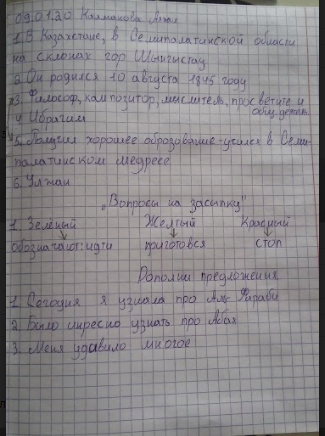 09.01.20 Калтакова Амал
1. В Казахстане, в Семипалатинской области
на склонах гор Шынгыстау
2. Он родился 10 августа 1845 году
3. Философ, композитор, мыслитель, просветитель и
общ. деятель
4 Ибрагим
5. Получил хорошее образование-учился в Семи-
палатинском медресе
6. Улжан
„Вопросы на засыпку"
1. Зелёный Желтый Красный
обозначают: идти приготовься стоп
Дополни предложения
1. Сегодня я узнала про Аль-Фараби
2. Было интересно узнать про Абая
3. Меня удивило многое